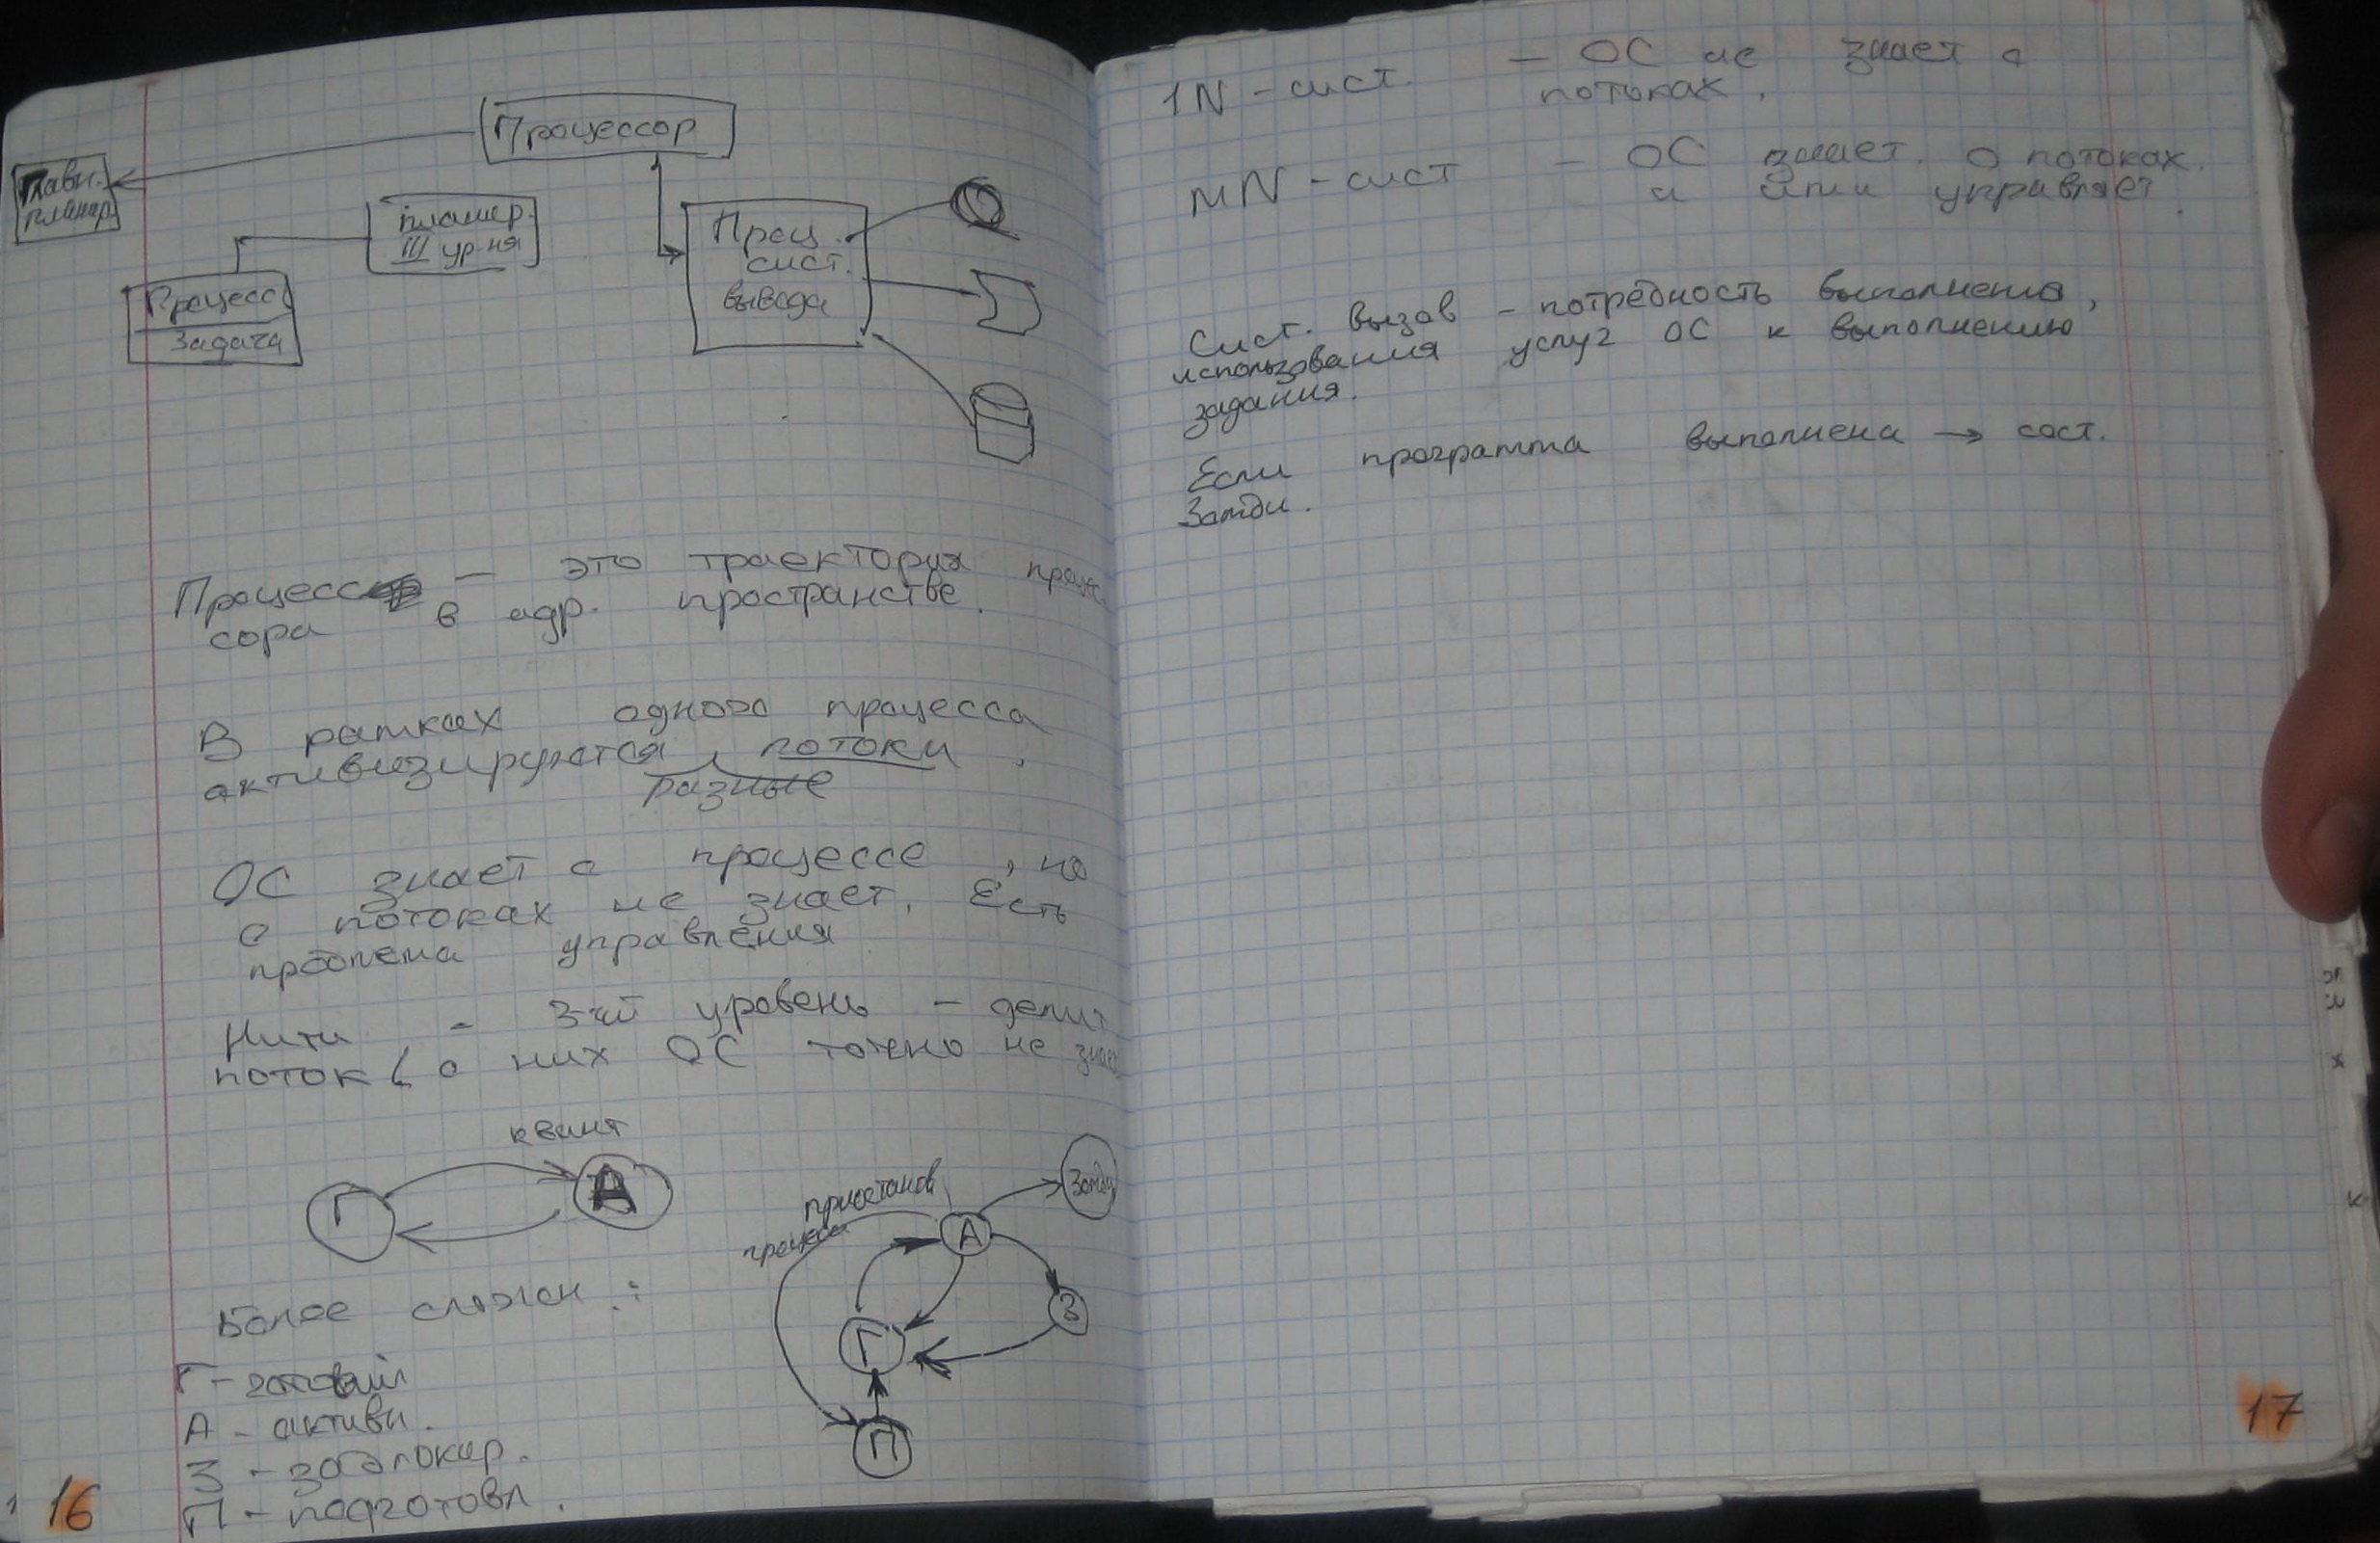 Процессор
Главн.
планир.
планир.
III ур-ня
Процесс
Задача
Проц.
сист.
вывода
Процесс — это траектория процес
сора в адр. пространстве.
В рамках одного процесса
активизируются потоки.
разные
ОС знает о процессе, но
о потоках не знает. Есть
проблема управления
Нити - 3-ий уровень - делит
поток (о них ОС точно не знает
квант
Г
А
Более сложн.:
Г - готовый
А - активн.
З - заблокир.
П - подготовл.
приостанов
процесса
А
Зомби
З
Г
П
16
1N - сист. — ОС не знает о
потоках.
MN - сист — ОС знает о потоках
и ими управляет.
Сист. вызов - потребность выполнения,
использования услуг ОС к выполнению
задания.
Если программа выполнена → сост.
Зомби.
17